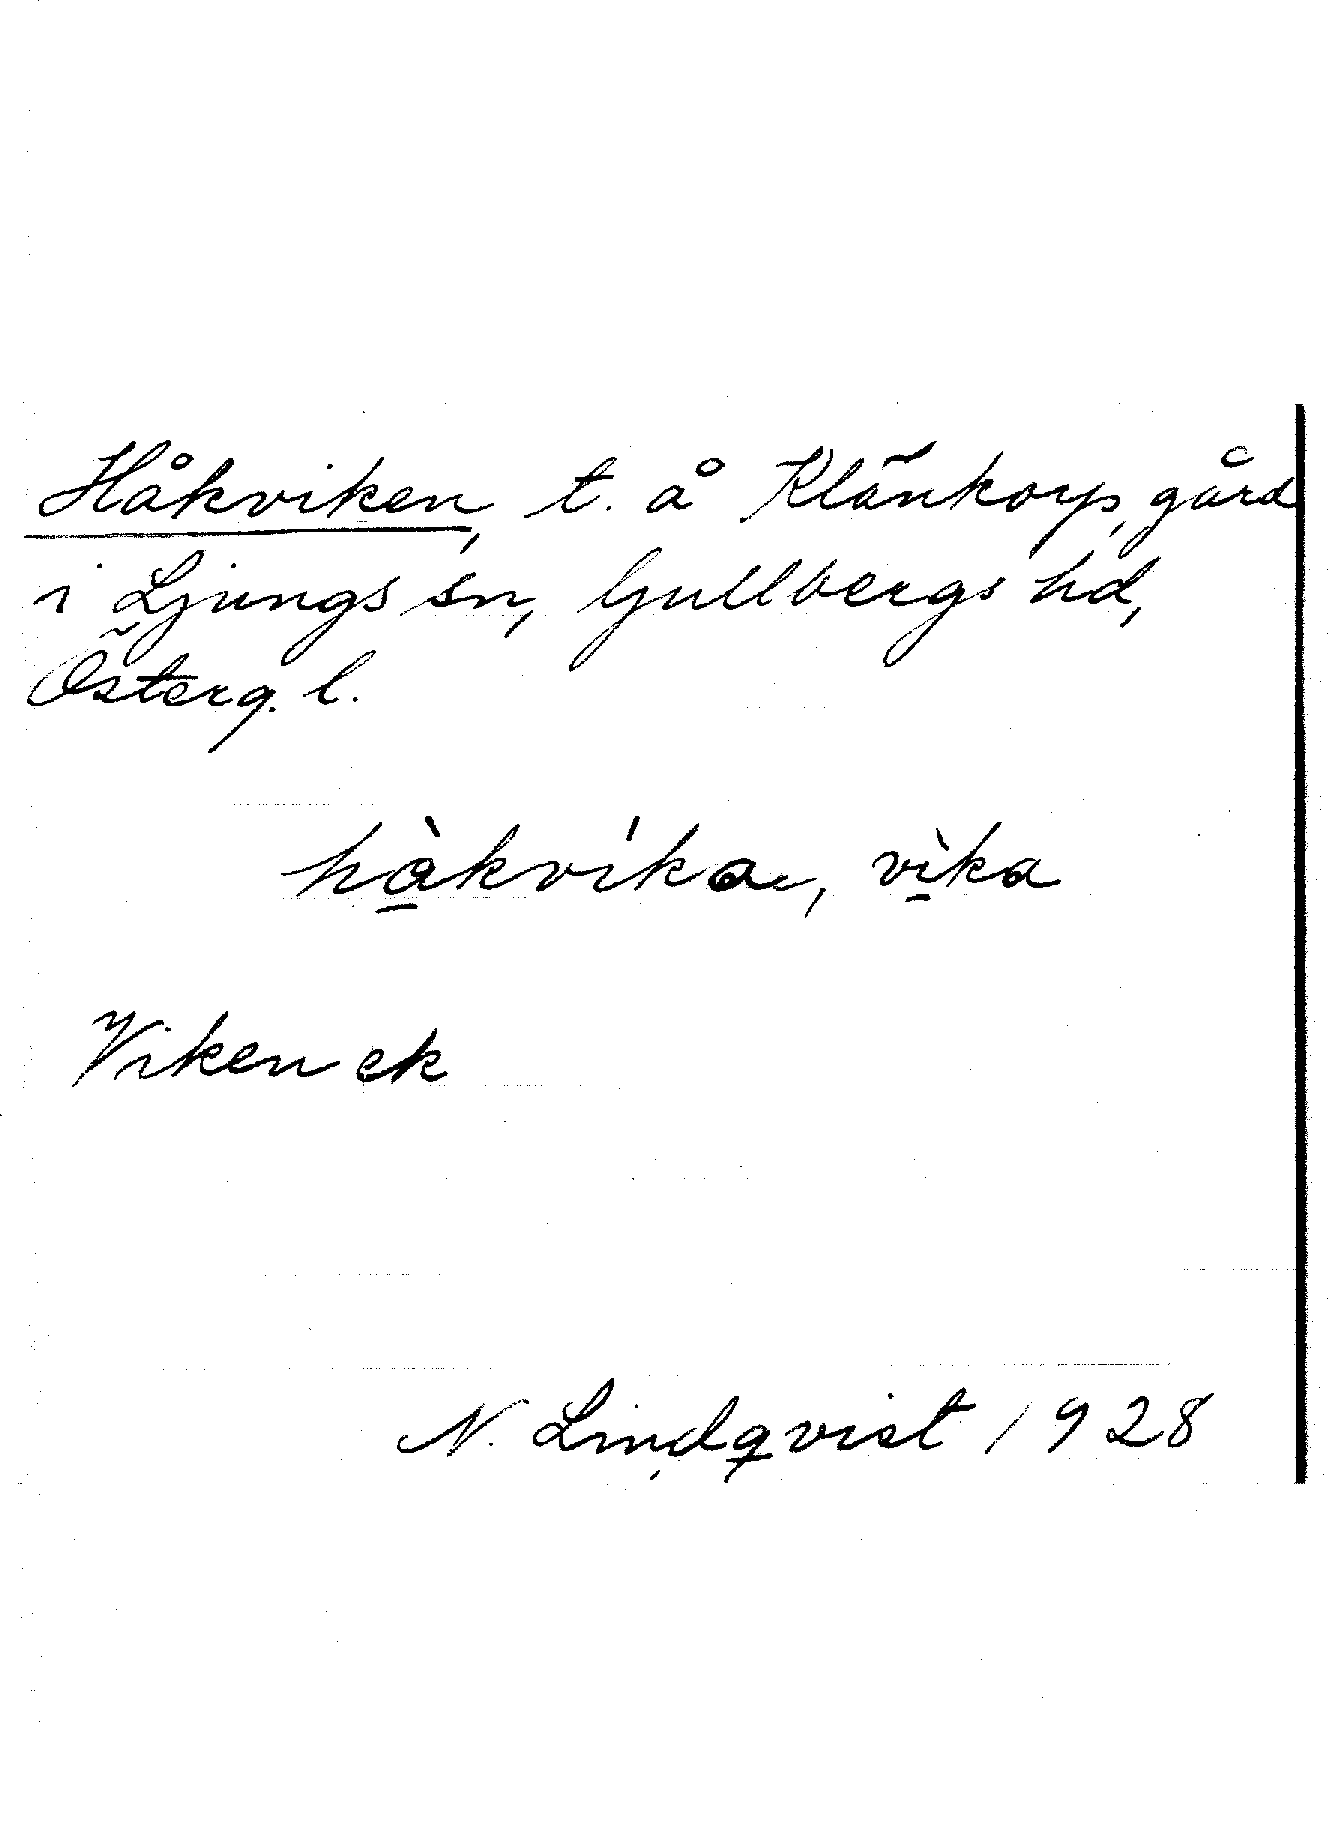 Håkviken, t. å Klänkorp, gård
i Ljungs sn, Gullbergs hd,
Österg. l.
hàkvíka, vìka
Viken ek
N. Lindqvist 1928